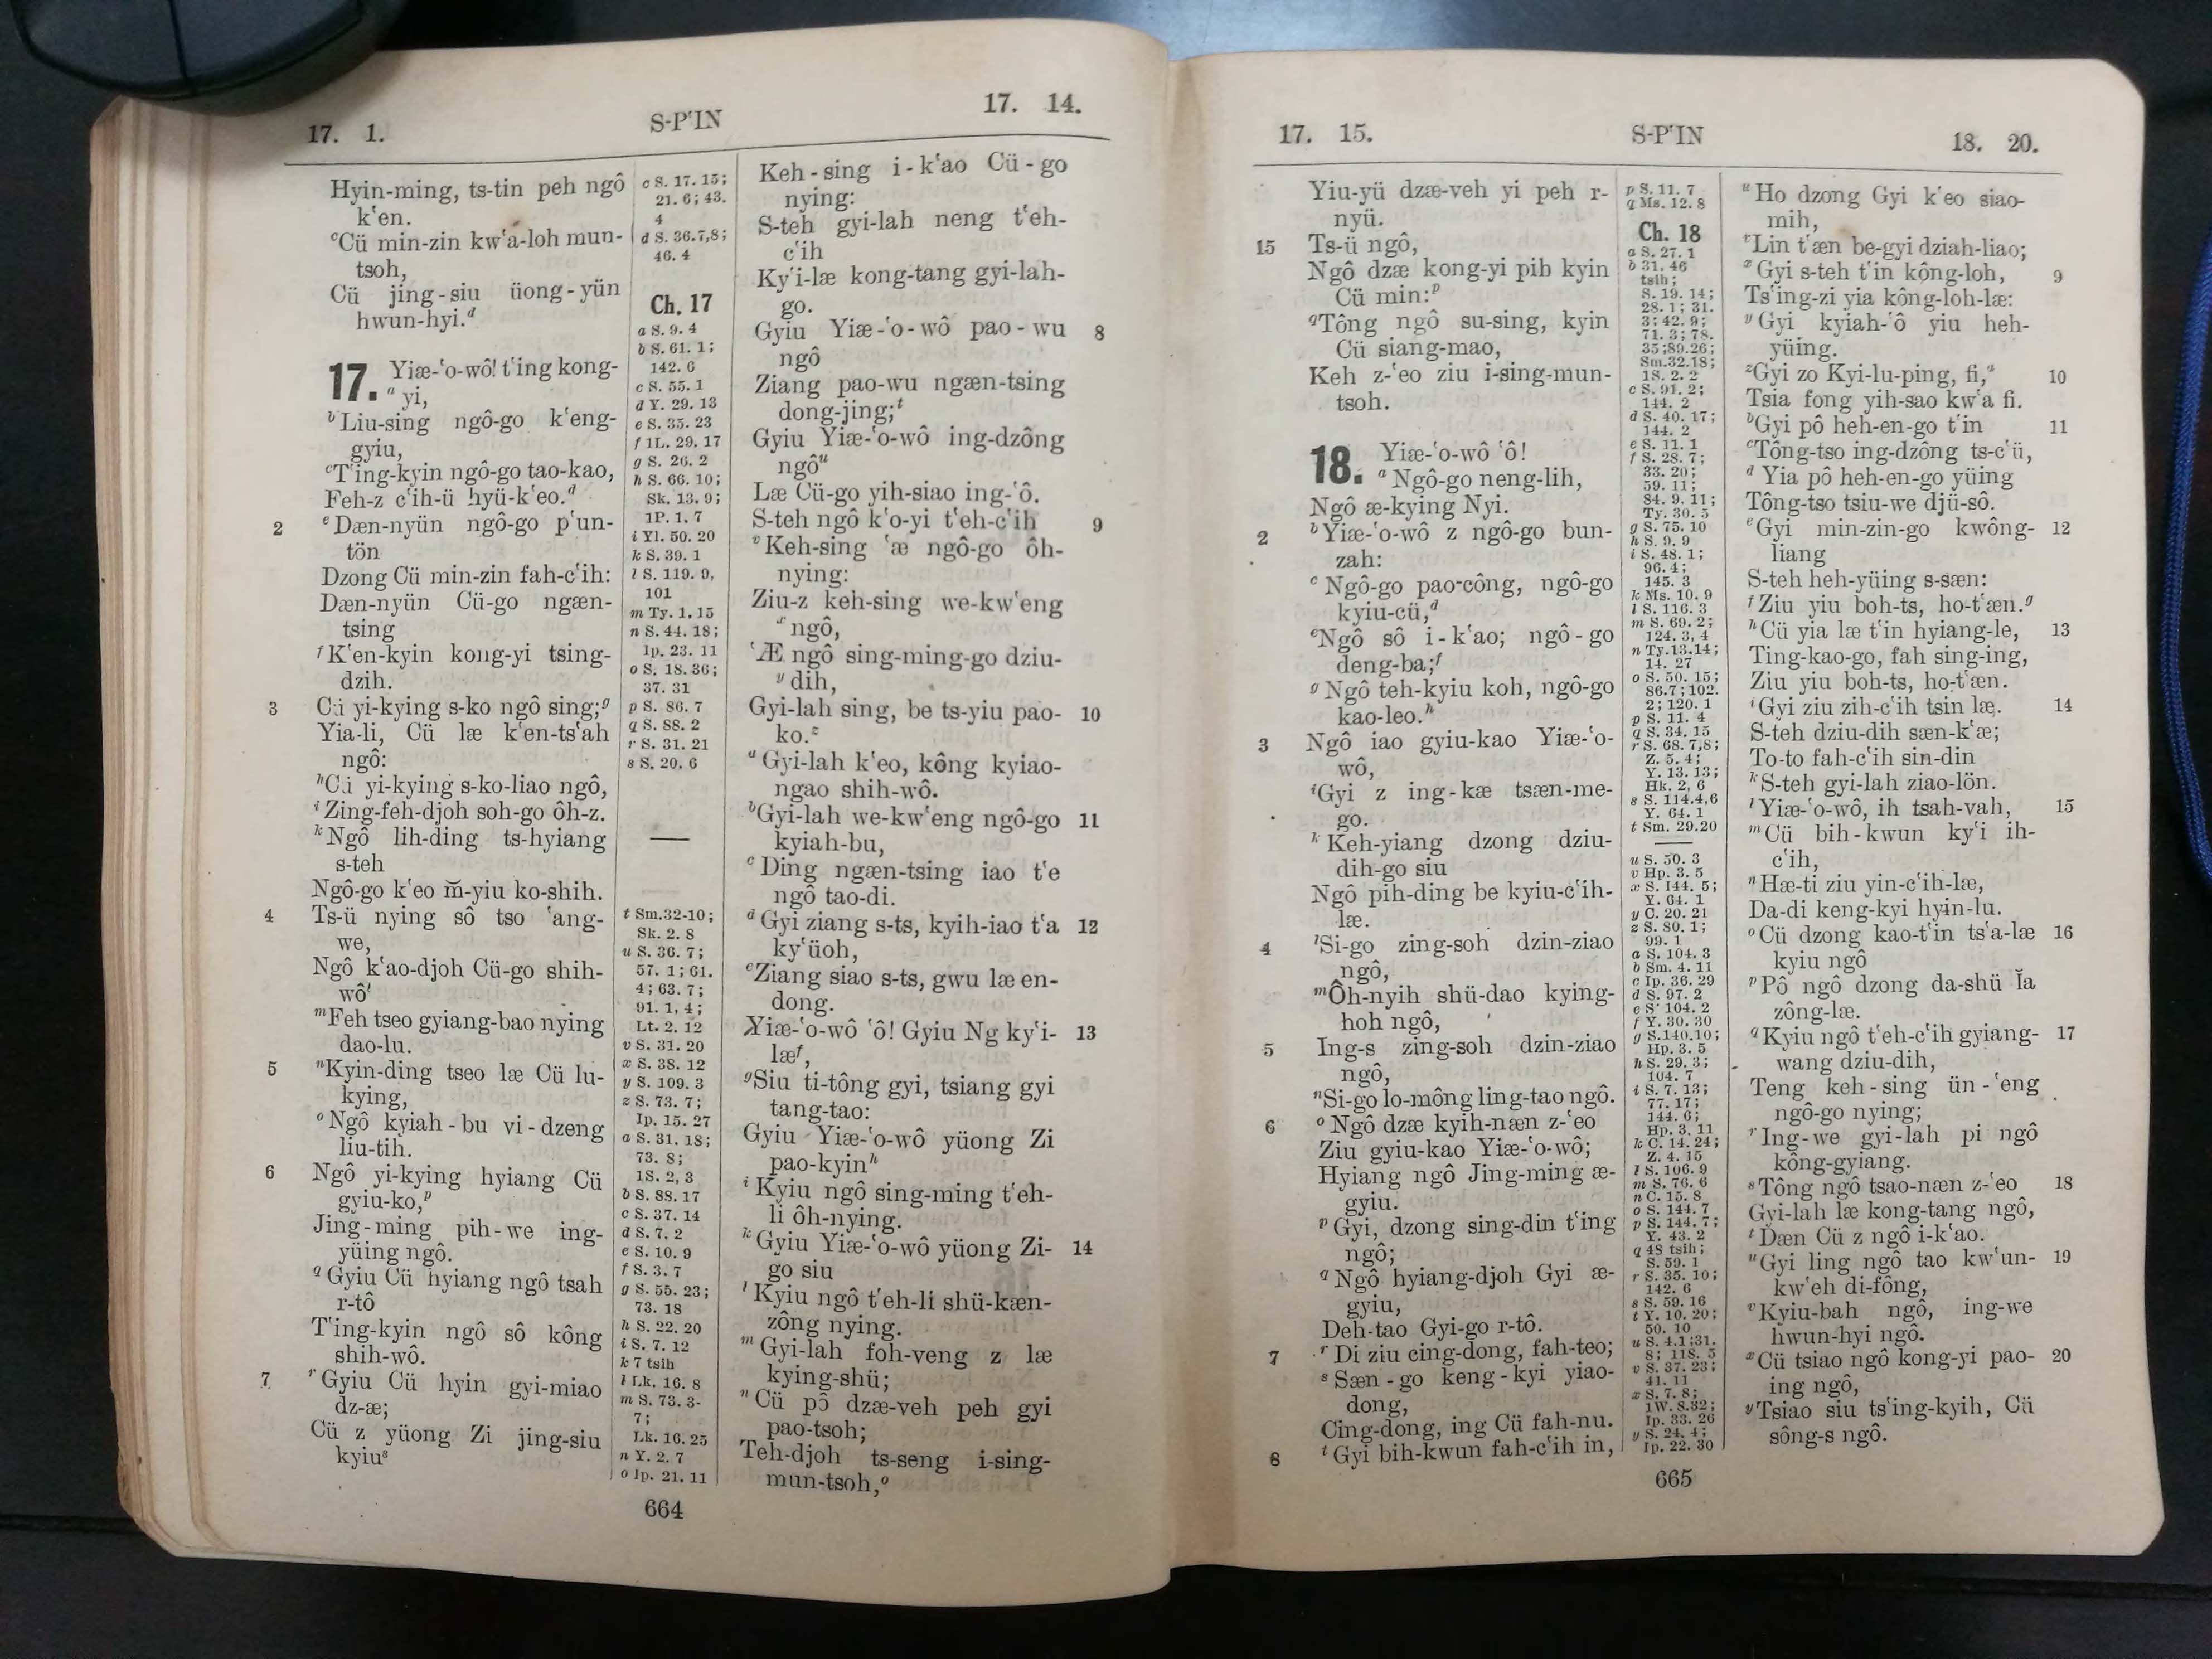 17. 1.
S-P‘IN
17. 14.
Hyin-ming, ts-tin peh ngô
k‘en.
cCü min-zin kw‘a-loh mun-
tsoh,
Cü jing-siu üong-yün
hwun-hyi.d
17. Yiæ-‘o-wô! t‘ing kong-
a yi,
bLiu-sing ngô-go k‘eng-
gyiu,
cT‘ing-kyin ngô-go tao-kao,
Feh-z c‘ih-ü hyü-k‘eo.d
2 eDæn-nyün ngô-go p‘un-
tön
Dzong Cü min-zin fah-c‘ih:
Dæn-nyün Cü-go ngæn-
tsing
fK‘en-kyin kong-yi tsing-
dzih.
3 Cü yi-kying s-ko ngô sing;g
Yia-li, Cü læ k‘en-ts‘ah
ngô:
hCü yi-kying s-ko-liao ngô,
iZing-feh-djoh soh-go ôh-z.
kNgô lih-ding ts-hyiang
s-teh
Ngô-go k‘eo m̆-yiu ko-shih.
4 Ts-ü nying sô tso ‘ang-
we,
Ngô k‘ao-djoh Cü-go shih-
wôl
mFeh tseo gyiang-bao nying
dao-lu.
5 nKyin-ding tseo læ Cü lu-
kying,
oNgô kyiah-bu vi-dzeng
liu-tih.
6 Ngô yi-kying hyiang Cü
gyiu-ko,p
Jing-ming pih-we ing-
yüing ngô.
qGyiu Cü hyiang ngô tsah
r-tô
T‘ing-kyin ngô sô kông
shih-wô.
7 rGyiu Cü hyin gyi-miao
dz-æ;
Cü z yüong Zi jing-siu
kyius
c S. 17. 15;
21. 6; 43.
4
d S. 36.7,8;
46. 4
Ch. 17
a S. 9. 4
b S. 61. 1;
142. 6
c S. 55. 1
d Y. 29. 13
e S. 35. 23
f 1L. 29. 17
g S. 26. 2
h S. 66. 10;
Sk. 13. 9;
1P. 1. 7
i Yl. 50. 20
k S. 39. 1
l S. 119. 9,
101
m Ty. 1. 15
n S. 44. 18;
Ip. 23. 11
o S. 18. 36;
37. 31
p S. 86. 7
q S. 88. 2
r S. 31. 21
s S. 20. 6
t Sm.32-10;
Sk. 2. 8
u S. 36. 7;
57. 1; 61.
4; 63. 7;
91. 1, 4;
Lt. 2. 12
v S. 31. 20
x S. 38. 12
y S. 109. 3
z S. 73. 7;
Ip. 15. 27
a S. 31. 18;
73. 8;
1S. 2, 3
b S. 88. 17
c S. 37. 14
d S. 7. 2
e S. 10. 9
f S. 3. 7
g S. 55. 23;
73. 18
h S. 22. 20
i S. 7. 12
k 7 tsih
l Lk. 16. 8
m S. 73. 3-
7;
Lk. 16. 25
n Y. 2. 7
o Ip. 21. 11
Keh-sing i-k‘ao Cü-go
nying:
S-teh gyi-lah neng t‘eh-
c‘ih
Ky‘i-læ kong-tang gyi-lah-
go.
Gyiu Yiæ-‘o-wô pao-wu 8
ngô
Ziang pao-wu ngæn-tsing
dong-jing;t
Gyiu Yiæ-‘o-wô ing-dzông
ngôu
Læ Cü-go yih-siao ing-‘ô.
S-teh ngô k‘o-yi t‘eh-c‘ih 9
vKeh-sing ‘æ ngô-go ôh-
nying:
Ziu-z keh-sing we-kw‘eng
x ngô,
‘Æ ngô sing-ming-go dziu-
y dih,
Gyi-lah sing, be ts-yiu pao- 10
ko.z
aGyi-lah k‘eo, kông kyiao-
ngao shih-wô.
bGyi-lah we-kw‘eng ngô-go 11
kyiah-bu,
cDing ngæn-tsing iao t‘e
ngô tao-di.
dGyi ziang s-ts, kyih-iao t‘a 12
ky‘üoh,
eZiang siao s-ts, gwu læ en-
dong.
Yiæ-‘o-wô ‘ô! Gyiu Ng ky‘i- 13
læf,
gSiu ti-tông gyi, tsiang gyi
tang-tao:
Gyiu Yiæ-‘o-wô yüong Zi
pao-kyinh
iKyiu ngô sing-ming t‘eh-
li ôh-nying.
kGyiu Yiæ-‘o-wô yüong Zi- 14
go siu
lKyiu ngô t‘eh-li shü-kæn-
zông nying.
mGyi-lah foh-veng z læ
kying-shü;
nCü pô dzæ-veh peh gyi
pao-tsoh;
Teh-djoh ts-seng i-sing-
mun-tsoh,o
664
17. 15.
S-P‘IN
18. 20.
Yiu-yü dzæ-veh yi peh r-
nyü.
15 Ts-ü ngô,
Ngô dzæ kong-yi pih kyin
Cü min:p
qTông ngô su-sing, kyin
Cü siang-mao,
Keh z-‘eo ziu i-sing-mun-
tsoh.
18. Yiæ-‘o-wô ‘ô!
aNgô-go neng-lih,
Ngô æ-kying Nyi.
2 bYiæ-‘o-wô z ngô-go bun-
zah:
cNgô-go pao-công, ngô-go
kyiu-cü,d
eNgô sô i-k‘ao; ngô-go
deng-ba;f
gNgô teh-kyiu koh, ngô-go
kao-leo.h
3 Ngô iao gyiu-kao Yiæ-‘o-
wô,
iGyi z ing-kæ tsæn-me-
go.
kKeh-yiang dzong dziu-
dih-go siu
Ngô pih-ding be kyiu-c‘ih-
læ.
4 lSi-go zing-soh dzin-ziao
ngô,
mÔh-nyih shü-dao kying-
hoh ngô,
5 Ing-s zing-soh dzin-ziao
ngô,
nSi-go lo-mông ling-tao ngô.
6 oNgô dzæ kyih-næn z-‘eo
Ziu gyiu-kao Yiæ-‘o-wô;
Hyiang ngô Jing-ming æ-
gyiu.
pGyi, dzong sing-din t‘ing
ngô;
qNgô hyiang-djoh Gyi æ-
gyiu,
Deh-tao Gyi-go r-tô.
7 rDi ziu cing-dong, fah-teo;
sSæn-go keng-kyi yiao-
dong,
Cing-dong, ing Cü fah-nu.
8 tGyi bih-kwun fah-c‘ih in,
p S. 11. 7
q Ms. 12. 8
Ch. 18
a S. 27. 1
b 31. 46
tsih;
S. 19. 14;
28. 1; 31.
3; 42. 9;
71. 3; 78.
35;89.26;
Sm.32.18;
1S. 2. 2
c S. 91. 2;
144. 2
d S. 40. 17;
144. 2
e S. 11. 1
f S. 28. 7;
33. 20;
59. 11;
84. 9. 11;
Ty. 30. 5
g S. 75. 10
h S. 9. 9
i S. 48. 1;
96. 4;
145. 3
k Ms. 10. 9
l S. 116. 3
m S. 69. 2;
124. 3, 4
n Ty.13.14;
14. 27
o S. 50. 15;
86.7; 102.
2; 120. 1
p S. 11. 4
q S. 34. 15
r S. 68. 7,8;
Z. 5. 4;
Y. 13. 13;
Hk. 2, 6
s S. 114.4,6
Y. 64. 1
t Sm. 29.20
u S. 50. 3
v Hp. 3. 5
x S. 144. 5;
Y. 64. 1
y C. 20. 21
z S. 80. 1;
99. 1
a S. 104. 3
b Sm. 4. 11
c Ip. 36. 29
d S. 97. 2
e S. 104. 2
f Y. 30. 30
g S.140.10;
Hp. 3. 5
h S. 29. 3;
104. 7
i S. 7. 13;
77. 17;
144. 6;
Hp. 3. 11
k C. 14. 24;
Z. 4. 15
l S. 106. 9
m S. 76. 6
n C. 15. 8
o S. 144. 7
p S. 144. 7;
Y. 43. 2
q 48 tsih;
S. 59. 1
r S. 35. 10;
142. 6
s S. 59. 16
t Y. 10. 20;
50. 10
u S. 4.1;31.
8; 118. 5
v S. 37. 23;
41. 11
x S. 7. 8;
1W. 8.32;
Ip. 33. 26
y S. 24. 4;
Ip. 22. 30
uHo dzong Gyi k‘eo siao-
mih,
vLin t‘æn be-gyi dziah-liao;
xGyi s-teh t‘in kông-loh, 9
Ts‘ing-zi yia kông-loh-læ:
yGyi kyiah-‘ô yiu heh-
yüing.
zGyi zo Kyi-lu-ping, fi,a 10
Tsia fong yih-sao kw‘a fi.
bGyi pô heh-en-go t‘in 11
cTông-tso ing-dzông ts-c‘ü,
dYia pô heh-en-go yüing
Tông-tso tsiu-we djü-sô.
eGyi min-zin-go kwông- 12
liang
S-teh heh-yüing s-sæn:
fZiu yiu boh-ts, ho-t‘æn.g
hCü yia læ t‘in hyiang-le, 13
Ting-kao-go, fah sing-ing,
Ziu yiu boh-ts, ho-t‘æn.
iGyi ziu zih-c‘ih tsin læ. 14
S-teh dziu-dih sæn-k‘æ;
To-to fah-c‘ih sin-din
kS-teh gyi-lah ziao-lön.
lYiæ-‘o-wô, ih tsah-vah, 15
mCü bih-kwun ky‘i ih-
c‘ih,
nHæ-ti ziu yin-c‘ih-læ,
Da-di keng-kyi hyin-lu.
oCü dzong kao-t‘in ts‘a-læ 16
kyiu ngô
pPô ngô dzong da-shü la
zông-læ.
qKyiu ngô t‘eh-c‘ih gyiang- 17
wang dziu-dih,
Teng keh-sing ün-‘eng
ngô-go nying;
rIng-we gyi-lah pi ngô
kông-gyiang.
sTông ngô tsao-næn z-‘eo 18
Gyi-lah læ kong-tang ngô,
tDæn Cü z ngô i-k‘ao.
uGyi ling ngô tao kw‘un- 19
kw‘eh di-fông,
vKyiu-bah ngô, ing-we
hwun-hyi ngô.
xCü tsiao ngô kong-yi pao- 20
ing ngô,
yTsiao siu ts‘ing-kyih, Cü
sông-s ngô.
665